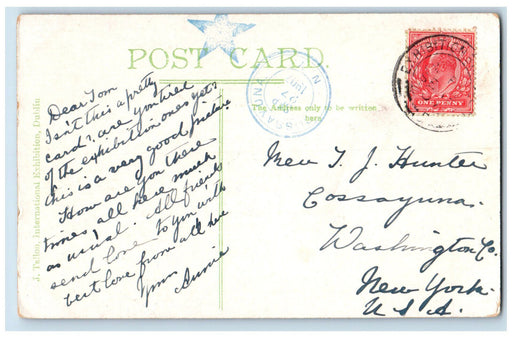 POST CARD.
The Address only to be written
here.
J. Tallon, International Exhibition, Dublin
EXHIBITION
ONE PENNY
COSSAYUNA N.Y.
Dear Tom
Isn't this a pretty
card? are you tired
of the exhibition ones yet?
this is a very good picture
How are you these
times, all here much
as usual. All friends
send love to you with
best love from all here
Yours Annie
Mr T. J. Hunter
Cossayuna.
Washington Co.
New York.
U.S.A.